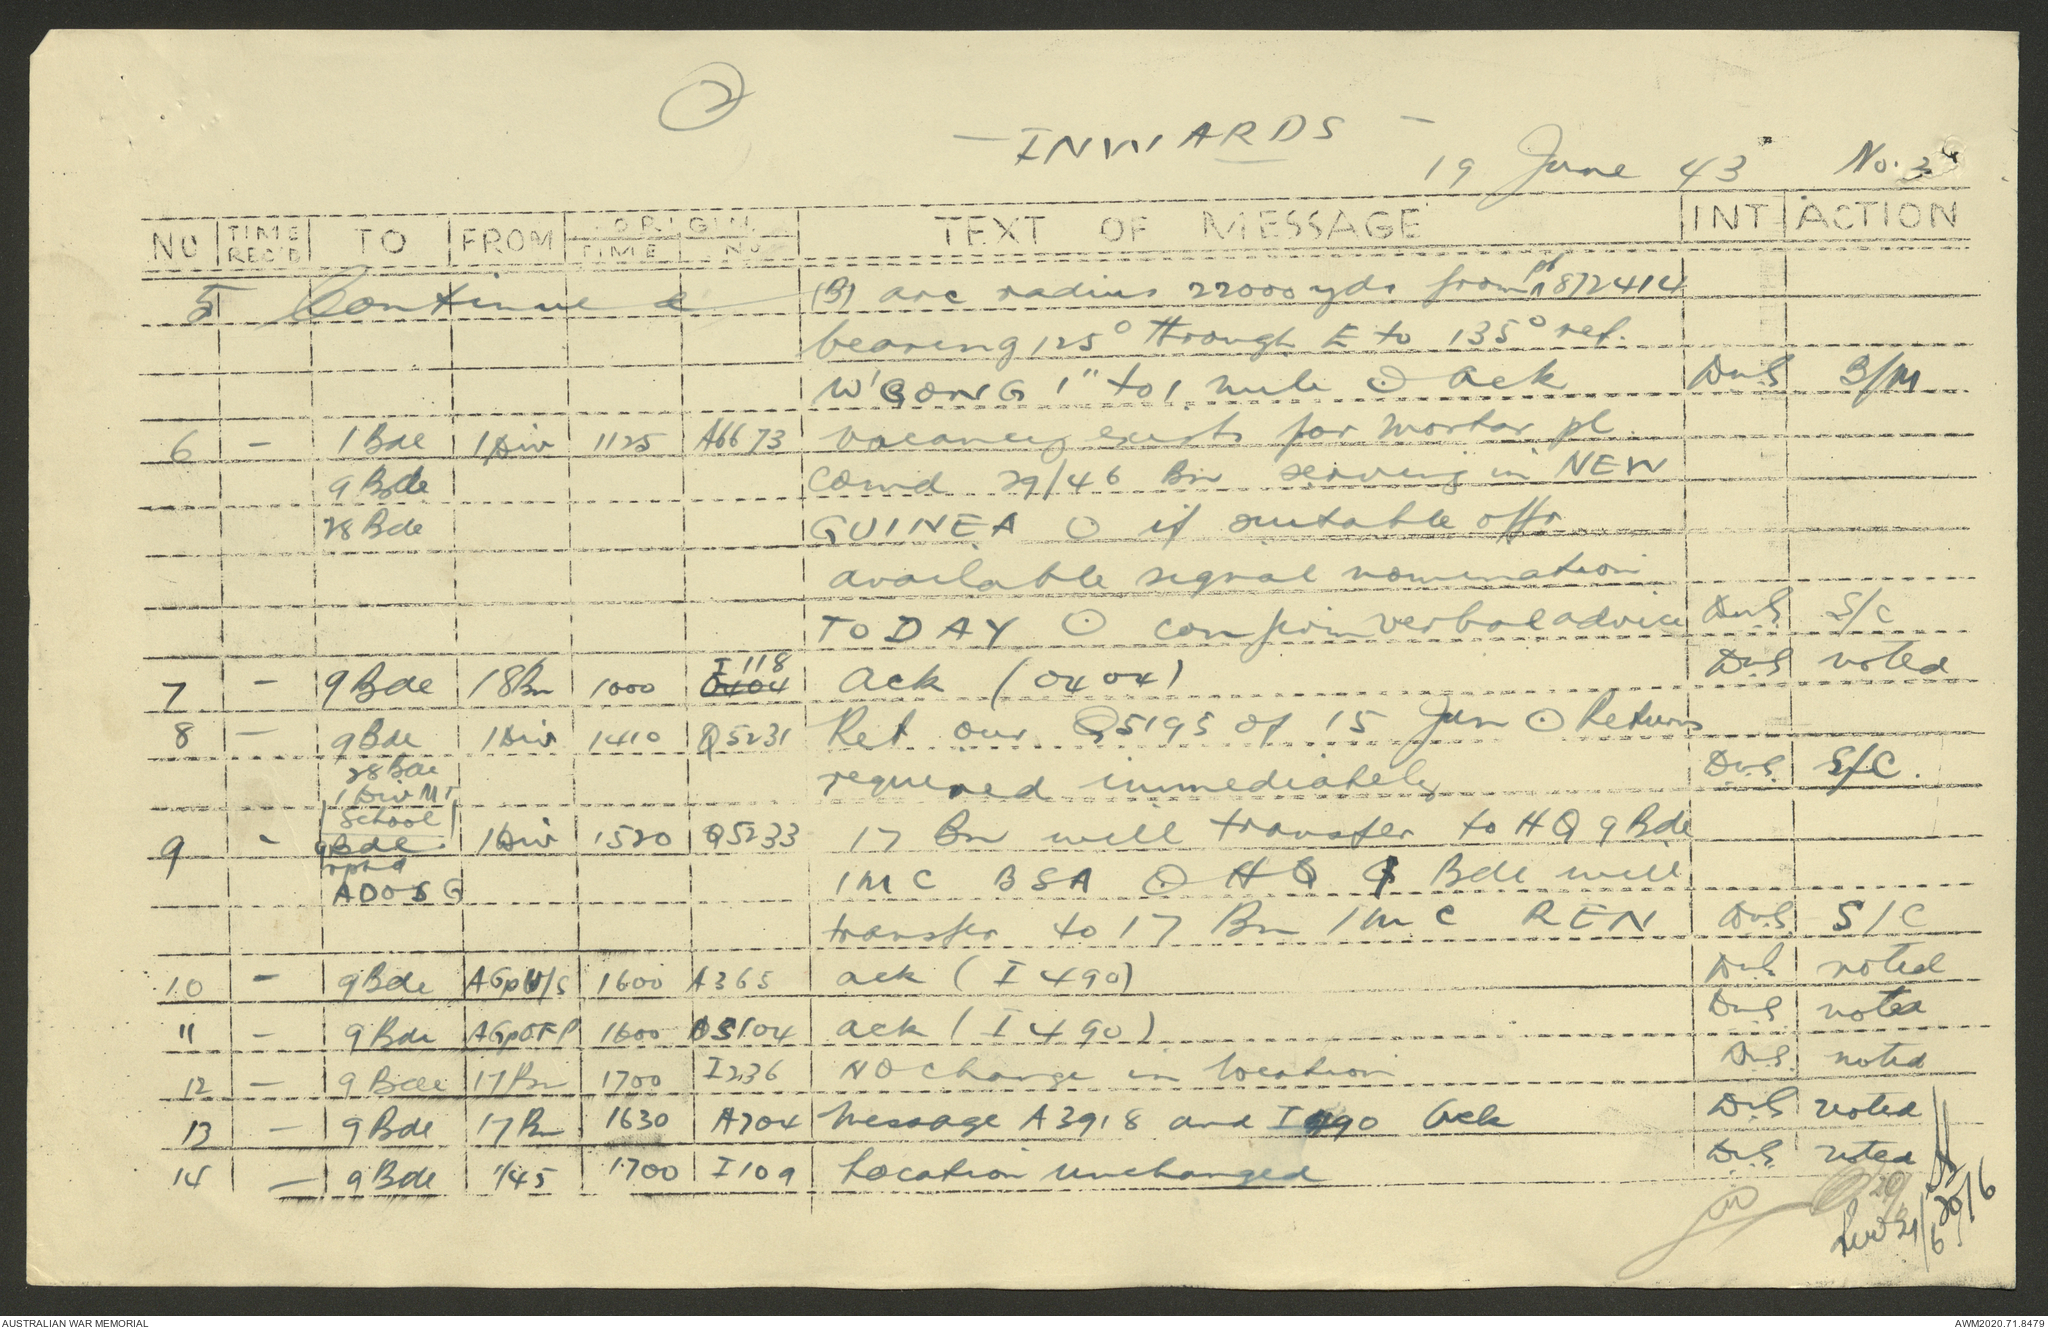 2
- INWARDS -
19 June 43 No. 34
NO | TIME REC'D | TO | FROM | ORIGIN TIME | ORIGIN No | TEXT OF MESSAGE | INT | ACTION
5 Continued (B) arc radius 22000 yds from pt 872414
bearing 125° through E to 135° ref.
W'GONG 1" to 1 mile ⊙ Ack | DuS | B/M
6 | - | 1 Bde | 1 Div | 1125 | A6673 | vacancy exists for mortar pl
9 Bde | comd 29/46 Bn serving in NEW
28 Bde | GUINEA ⊙ if suitable offr
available signal nomination
TODAY ⊙ confirm verbal advice | DuS | S/C
7 | - | 9 Bde | 18 Bn | 1000 | I118 O404 | Ack (O404) | DuS | noted
8 | - | 9 Bde | 1 Div | 1410 | Q5231 | Ref our Q5195 of 15 Jun ⊙ Returns
28 Bde | required immediately | DuS. | S/C.
1 Div MT
School
9 | - | 9 Bde | 1 Div | 1520 | Q5233 | 17 Bn will transfer to HQ 9 Bde
rptd | 1 MC BSA ⊙ HQ 9 Bde will
ADOS G
transfer to 17 Bn 1 MC REN | DuS | S/C
10 | - | 9 Bde | AGpW/S | 1600 | A365 | ack (I490) | DuS | noted
11 | - | 9 Bde | AGpOFP | 1600 | OS104 | ack (I490) | DuS | noted
12 | - | 9 Bde | 17 Bn | 1700 | I236 | NO change in location | DuS. | noted
13 | - | 9 Bde | 17 Bn | 1630 | A704 | Message A3918 and I490 Ack | DuS | noted
14 | - | 9 Bde | 1/45 | 1700 | I109 | Location unchanged | DuS. | noted
20/6
21/6
20/6
AUSTRALIAN WAR MEMORIAL
AWM2020.71.8479